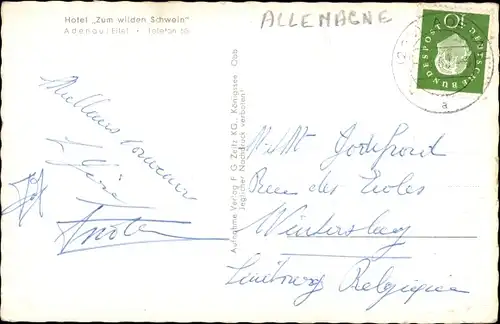 Hotel „Zum wilden Schwein"
Adenau/Eifel • Telefon 55
ALLEMAGNE
10
DEUTSCHE BUNDESPOST
a
Meilleurs souvenirs
Aufnahme Verlag F. G. Zeitz KG., Königssee Obb
Jeglicher Nachdruck verboten!
M. Mt Godefroid
Rue des Ecoles
Wintersley
Limbourg Belgique